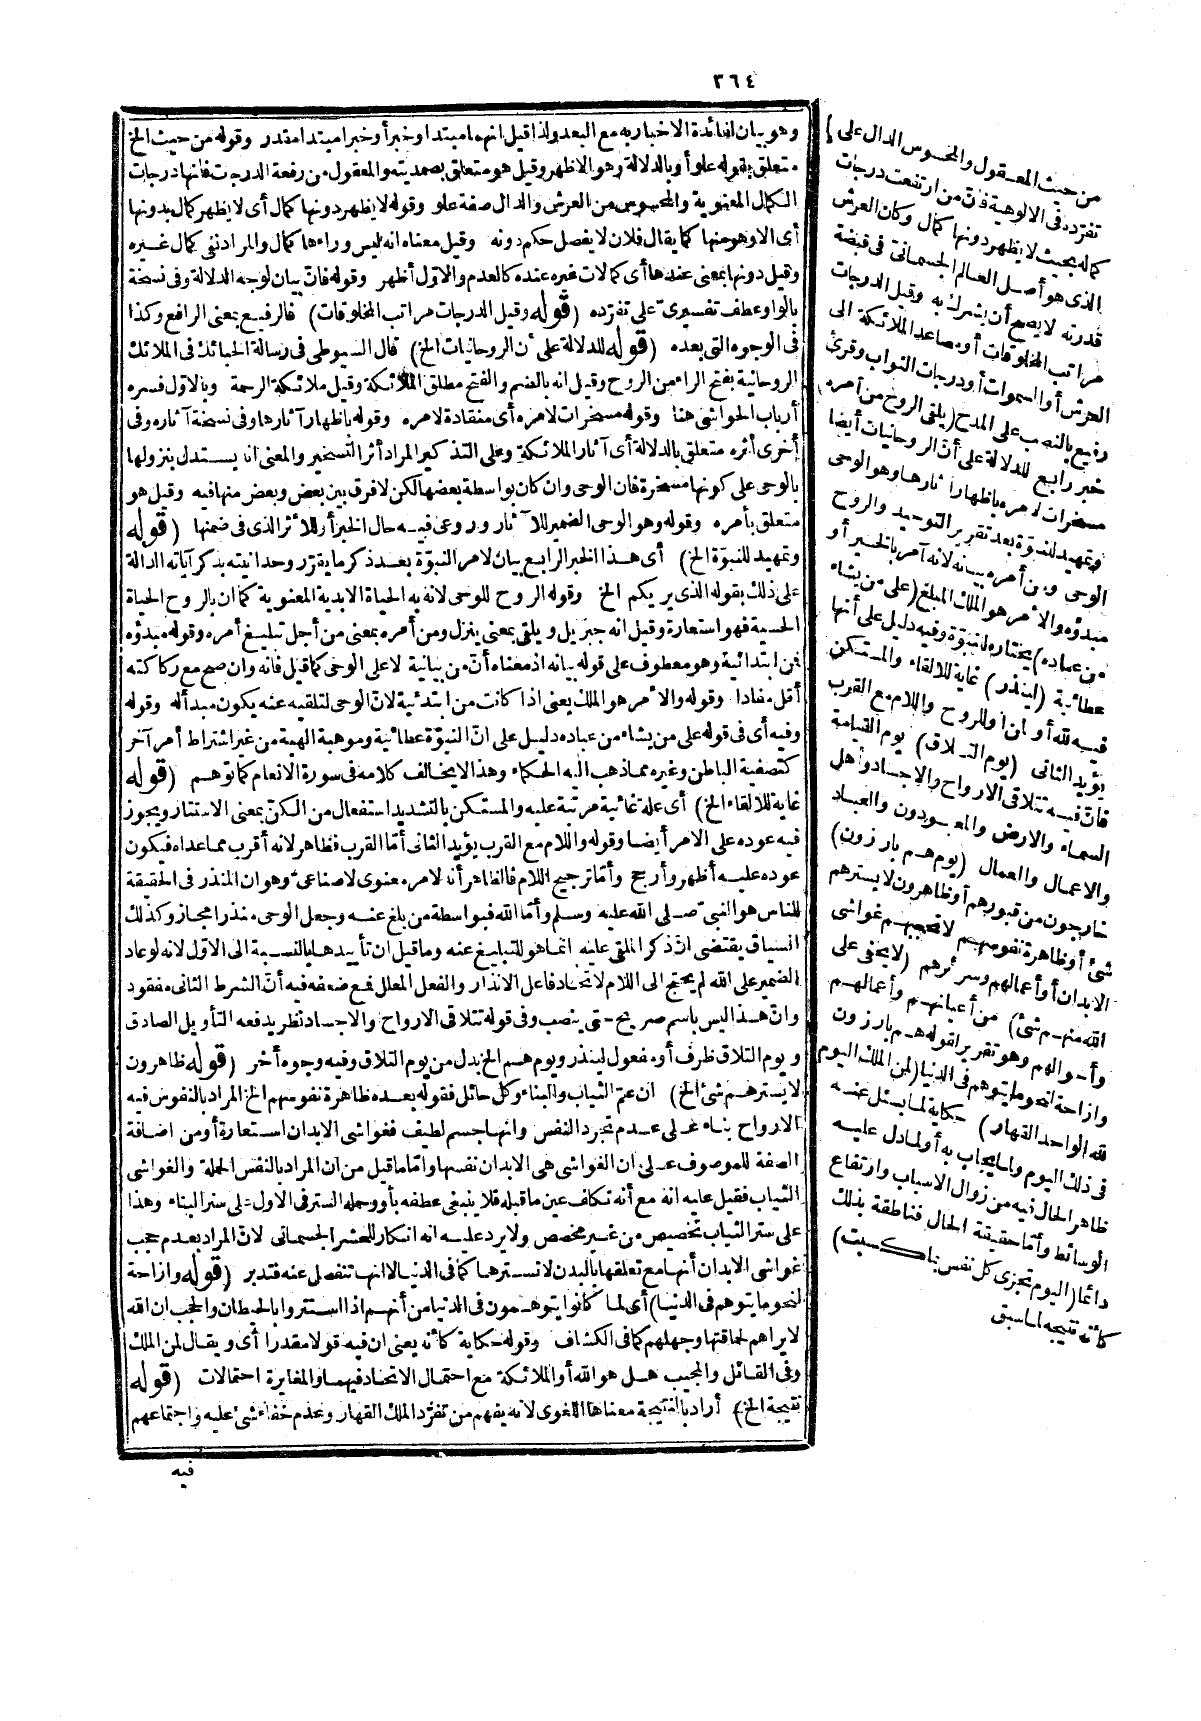 ٣٦٤
وهو بيان لفائدة الاخبار به مع البعد ولذا قيل انهما مبتدا وخبر أو خبرا مبتدا مقدر وقوله من حيث الخ
متعلق بقوله علو أو بالدلالة وهو الاظهر وقيل هو متعلق بصمديته والمعقول من رفعة الدرجات فانها درجات
الكمال المعنوية والمحسوس من العرش والدال صفة علو وقوله لا يظهر دونها كمال أى لا يظهر كمال بدونها
أى الا وهو منها كما يقال فلان لا يفصل حكم دونه وقيل معناه انه ليس وراءها كمال والمراد نفى كمال غيره
وقيل دونها بمعنى عندها أى كمالات غيره عنده كالعدم والاول أظهر وقوله فانّ بيان لوجه الدلالة وفى نسخة
بالواو عطف تفسيرىّ على تفرّده (قوله وقيل الدرجات مراتب المخلوقات) فالرفيع بمعنى الرافع وكذا
فى الوجوه التى بعده (قوله للدلالة على أن الروحانيات الخ) قال السيوطى فى رسالة الحبائك فى الملائك
الروحانية بفتح الراء من الروح وقيل انه بالضم والفتح مطلق الملائكة وقيل ملائكة الرحمة وبالاول فسره
أرباب الحواشى هنا وقوله مسخرات لامره أى منقادة لامره وقوله باظهار آثارها وفى نسخة آثاره وفى
أخرى أثره متعلق بالدلالة أى آثار الملائكة وعلى التذكير المراد أثر التسخير والمعنى انه يستدل بنزولها
بالوحى على كونها مسخرة فان الوحى وان كان بواسطة بعضها لكن لا فرق بين بعض وبعض منها فيه وقيل هو
متعلق بأمره وقوله وهو الوحى الضمير للآثار وروعى فيه حال الخبر أو للاثر الذى فى ضمنها (قوله
وتمهيد للنبوّة الخ) أى هذا الخبر الرابع بيان لامر النبوّة بعد ذكر ما يقرّر وحدانيته بذكر آياته الدالة
على ذلك بقوله الذى يريكم الخ وقوله الروح للوحى لانه به الحياة الابدية المعنوية كما ان بالروح الحياة
الحسية فهو استعارة وقيل انه جبريل ويلقى بمعنى ينزل ومن أمره بمعنى من أجل تبليغ أمره وقوله مبدؤه
فمن ابتدائية وهو معطوف على قوله بيانه اذ معناه أنّ من بيانية لا على الوحى كما قيل فانه وان صح مع ركاكته
أقل مفادا وقوله والآمر هو الملك يعنى اذا كانت من ابتدائية لانّ الوحى لتلقيه عنه يكون مبدأ له وقوله
وفيه أى فى قوله على من يشاء من عباده دليل على انّ النبوّة عطائية وموهبة الهية من غير اشتراط أمر آخر
كتصفية الباطن وغيره مما ذهب اليه الحكماء وهذا لا يخالف كلامه فى سورة الانعام كما توهم (قوله
غاية للالقاء الخ) أى علة غائية مرتبة عليه والمستكن بالتشديد استفعال من الكنّ بمعنى الاستتار ويجوز
فيه عوده على الامر أيضا وقوله واللام مع القرب يؤيد الثانى أمّا القرب فظاهر لانه أقرب مما عداه فيكون
عوده عليه أظهر وأرجح وأمّا ترجيح اللام فالظاهر أنه لامر معنوى لا صناعى وهو ان المنذر فى الحقيقة
للناس هو النبىّ صلى الله عليه وسلم وأمّا الله فبواسطة من بلغ عنه وجعل الوحى منذرا مجاز وكذلك
السياق يقتضى انّ ذكر الملقى عليه انما هو للتبليغ عنه وما قيل ان تأييدها بالنسبة الى الاول لانه لو عاد
الضمير على الله لم يحتج الى اللام لاتحاد فاعل الانذار والفعل المعلل فمع ضعفه فيه أنّ الشرط الثانى مفقود
وانّ هذا ليس باسم صريح حتى ينصب وفى قوله تتلاقى الارواح والاجساد نظر يدفعه التأويل الصادق
ويوم التلاق ظرف أو مفعول لينذر ويوم هم الخ بدل من يوم التلاق وفيه وجوه أخر (قوله ظاهرون
لا يسترهم شئ الخ) ان عمّ الثياب والبناء وكل حائل فقوله بعده ظاهرة نفوسهم الخ المراد بالنفوس فيه
الارواح بناء على عدم تجرد النفس وانها جسم لطيف فغواشى الابدان استعارة أو من اضافة
الصفة للموصوف على ان الغواشى هى الابدان نفسها وامّا ما قيل من ان المراد بالنفس الجملة والغواشى
الثياب فقيل عليه انه مع أنه تكلف عين ما قبله فلا ينبغى عطفه بأو وحمله الستر فى الاول على ستر البناء وهذا
على ستر الثياب تخصيص من غير مخصص ولا يرد عليه انه انكار للحشر الجسمانى لانّ المراد بعدم حجب
غواشى الابدان أنها مع تعلقها بالبدن لا تسترها كما فى الدنيا لا انها تنفصل عنه فتدبر (قوله وازاحة
لنحو ما يتوهم فى الدنيا) أى لما كانوا يتوهمون فى الدنيا من أنهم اذا استتروا بالحيطان والحجب ان الله
لا يراهم لحماقتها وجهلهم كما فى الكشاف وقوله حكاية كأنه يعنى ان فيه قولا مقدرا أى ويقال لمن الملك
وفى القائل والمجيب هل هو الله أو الملائكة مع احتمال الاتحاد فيهما والمغايرة احتمالات (قوله
نتيجة الخ) أراد بالنتيجة معناها اللغوى لانه يفهم من تفرّد الملك القهار وعدم خفاء شئ عليه واجتماعهم
فيه
من حيث المعقول والمحسوس الدال على
تفرّده فى الالوهية فانّ من ارتفعت درجات
كماله بحيث لا يظهر دونها كمال وكان العرش
الذى هو أصل العالم الجسمانى فى قبضة
قدرته لا يصح أن يشرك به وقيل الدرجات
مراتب المخلوقات أو مصاعد الملائكة الى
العرش أو السموات أو درجات الثواب وقرئ
رفيع بالنصب على المدح (يلقى الروح من أمره)
خبر رابع للدلالة على أنّ الروحانيات أيضا
مسخرات لامره باظهار آثارها وهو الوحى
وتمهيد للنبوّة بعد تقرير التوحيد والروح
الوحى ومن أمره بيانه لانه آمر بالخير أو
مبدؤه والآمر هو الملك المبلغ (على من يشاء
من عباده) يختاره للنبوّة وفيه دليل على أنها
عطائية (لينذر) غاية للالقاء والمستكن
فيه لله أو لمن أو للروح واللام مع القرب
يؤيد الثانى (يوم التلاق) يوم القيامة
فانّ فيه تتلاقى الارواح والاجساد وأهل
السماء والارض والمعبودون والعباد
والاعمال والعمال (يوم هم بارزون)
خارجون من قبورهم أو ظاهرون لا يسترهم
شئ أو ظاهرة نفوسهم لا تحجبهم غواشى
الابدان أو أعمالهم وسرائرهم (لا يخفى على
الله منهم شئ) من أعيانهم وأعمالهم
وأحوالهم وهو تقرير لقوله هم بارزون
وازاحة لنحو ما يتوهم فى الدنيا (لمن الملك اليوم
لله الواحد القهار) حكاية لما يسئل عنه
فى ذلك اليوم ولما يجاب به أو لما دل عليه
ظاهر الحال فيه من زوال الاسباب وارتفاع
الوسائط وأمّا حقيقة الحال فناطقة بذلك
دائما (اليوم تجزى كل نفس بما كسبت)
كأنه نتيجة لما سبق